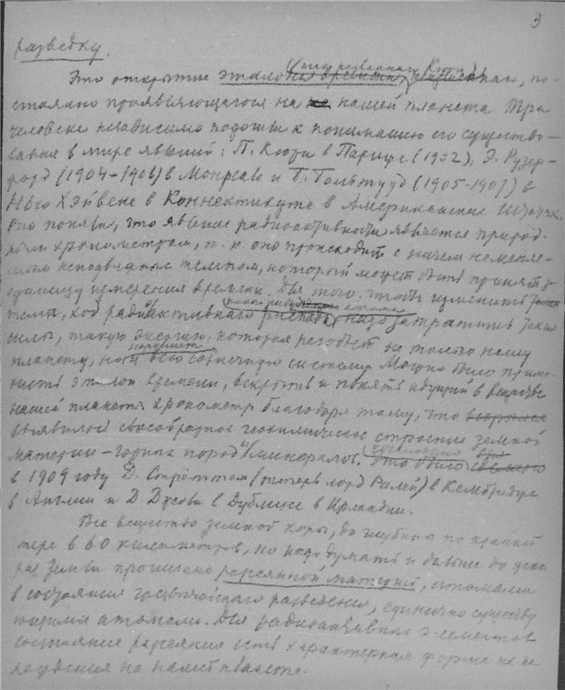 3
разведку.
Это открытие эталона времени,
стоянно проявляющегося на нашей планете. Три
человека независимо подошли к пониманию его существо-
вания в мире явлений: П. Кюри в Париже (1902), Э. Резер-
форд (1904-1906) в Монреале и Б. Больтвуд (1905-1907) в
Нью Хэйвене в Коннектикуте в Американских Штатах.
Они поняли, что явление радиоактивности является природ-
ным хронометром, т. к. оно происходит с ничем не изменя-
емым неподвижным темпом, который может быть принят за
единицу измерения времени. Для того, чтобы изменить
темп, ход радиоактивного распада, надо затратить такие
силы, такую энергию, которая разобьет не только нашу
планету, но и всю солнечную систему. Можно было приме-
нить эталон времени, вскрыть и понять идущий в веществе
нашей планеты хронометр благодаря тому, что
выявилось своеобразное геохимическое строение земной
материи - горных пород и минералов.
в 1909 году Д. Стрёттом (теперь лорд Ралей) в Кембридже
в Англии и Д. Джоли в Дублине в Ирландии.
Все вещество земной коры, до глубины по крайней
мере в 60 километров, но надо думать и дальше до
земли проникнуто рассеянной материей, атомами
в состоянии разведения, единично существу
ющими атомами. Для радиоактивных элементов
состояние рассеяния есть характерная форма их на
хождения на нашей планете.